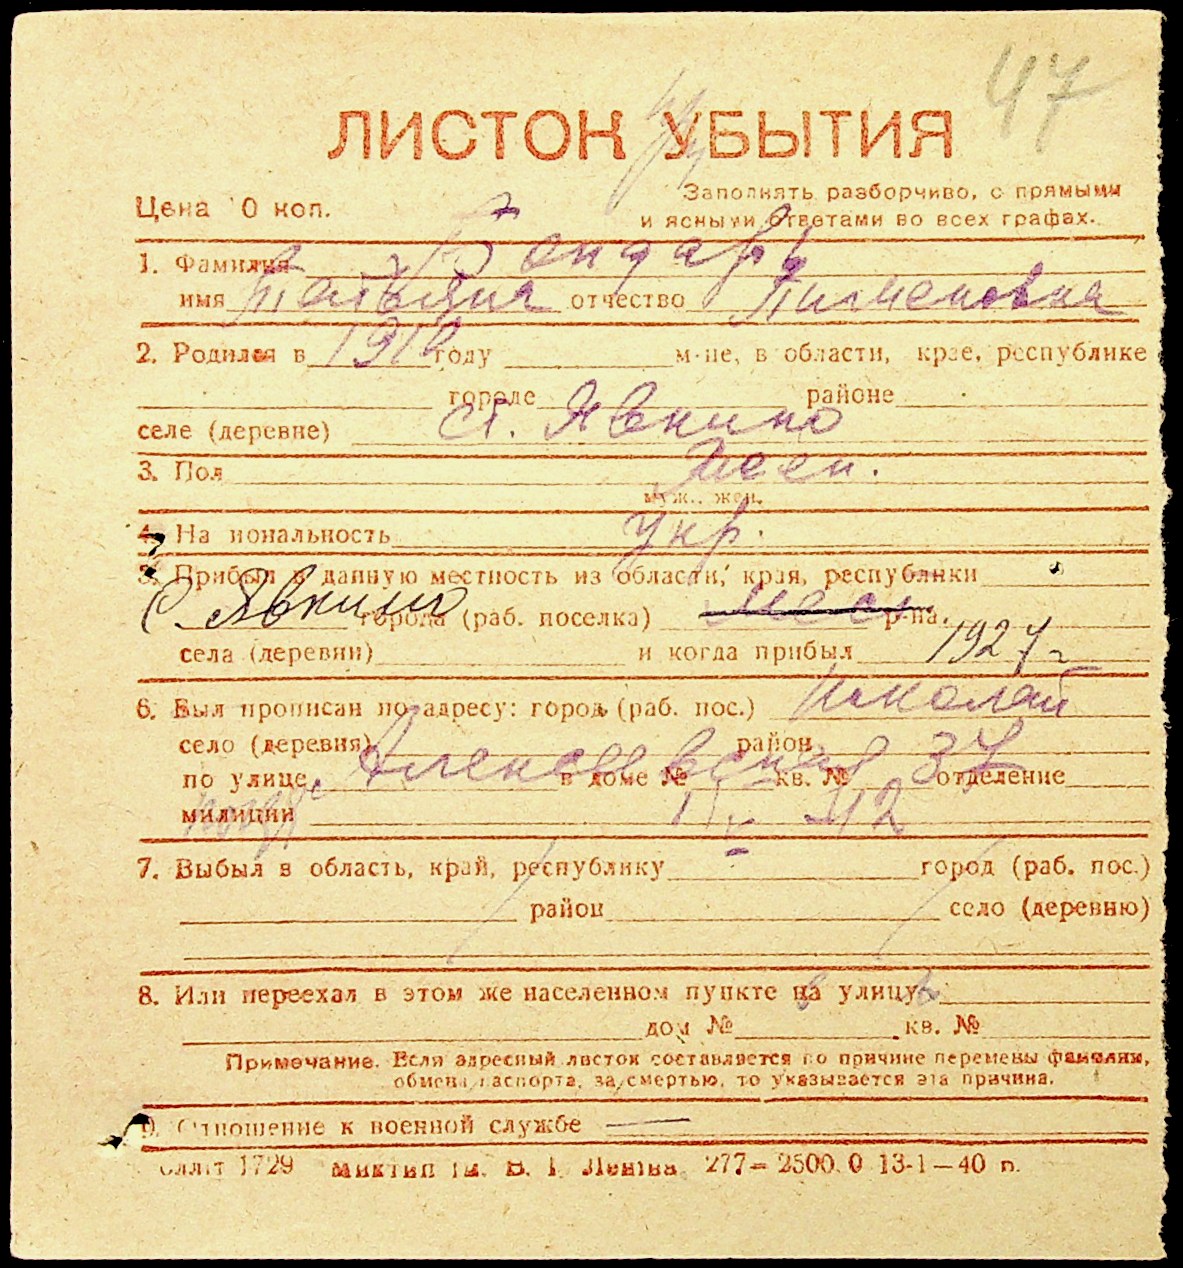 47
ЛИСТОК УБЫТИЯ
Цена 10 коп.
Заполнять разборчиво, с прямыми
и ясными ответами во всех графах.
1. Фамилия Бондарь
имя Татьяна отчество Пименовна
2. Родился в 1912 году м-це, в области, крае, республике
городе районе
селе (деревне) ст. Явкино
3. Пол жен.
муж., жен.
4. Национальность укр.
5. Прибыл в данную местность из области, края, республики
с. Явкино города (раб. поселка) р-на.
села (деревни) и когда прибыл 1927 г
6. Был прописан по адресу: город (раб. пос.) Николаев
село (деревня) район
по улице Алексеевская в доме № кв. № 37 отделение
милиции IV 42
7. Выбыл в область, край, республику город (раб. пос.)
район село (деревню)
8. Или переехал в этом же населенном пункте на улицу
дом № кв. №
Примечание. Если адресный листок составляется по причине перемены фамилии,
обмена паспорта, за смертью, то указывается эта причина.
9. Отношение к военной службе —
1729 им. В. І. Леніна 277—2500.0 13-1—40 р.